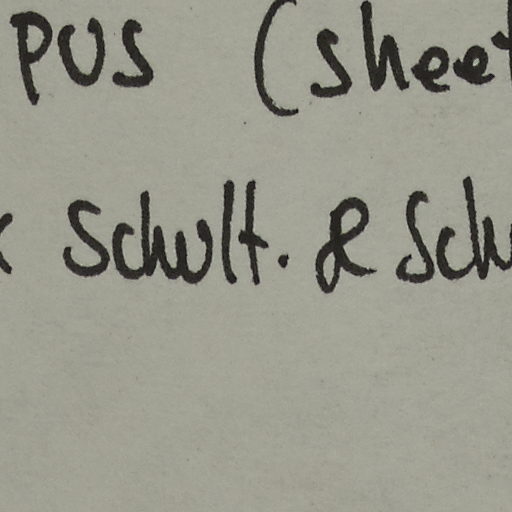 PUS (sheet
x Schult. & Sch